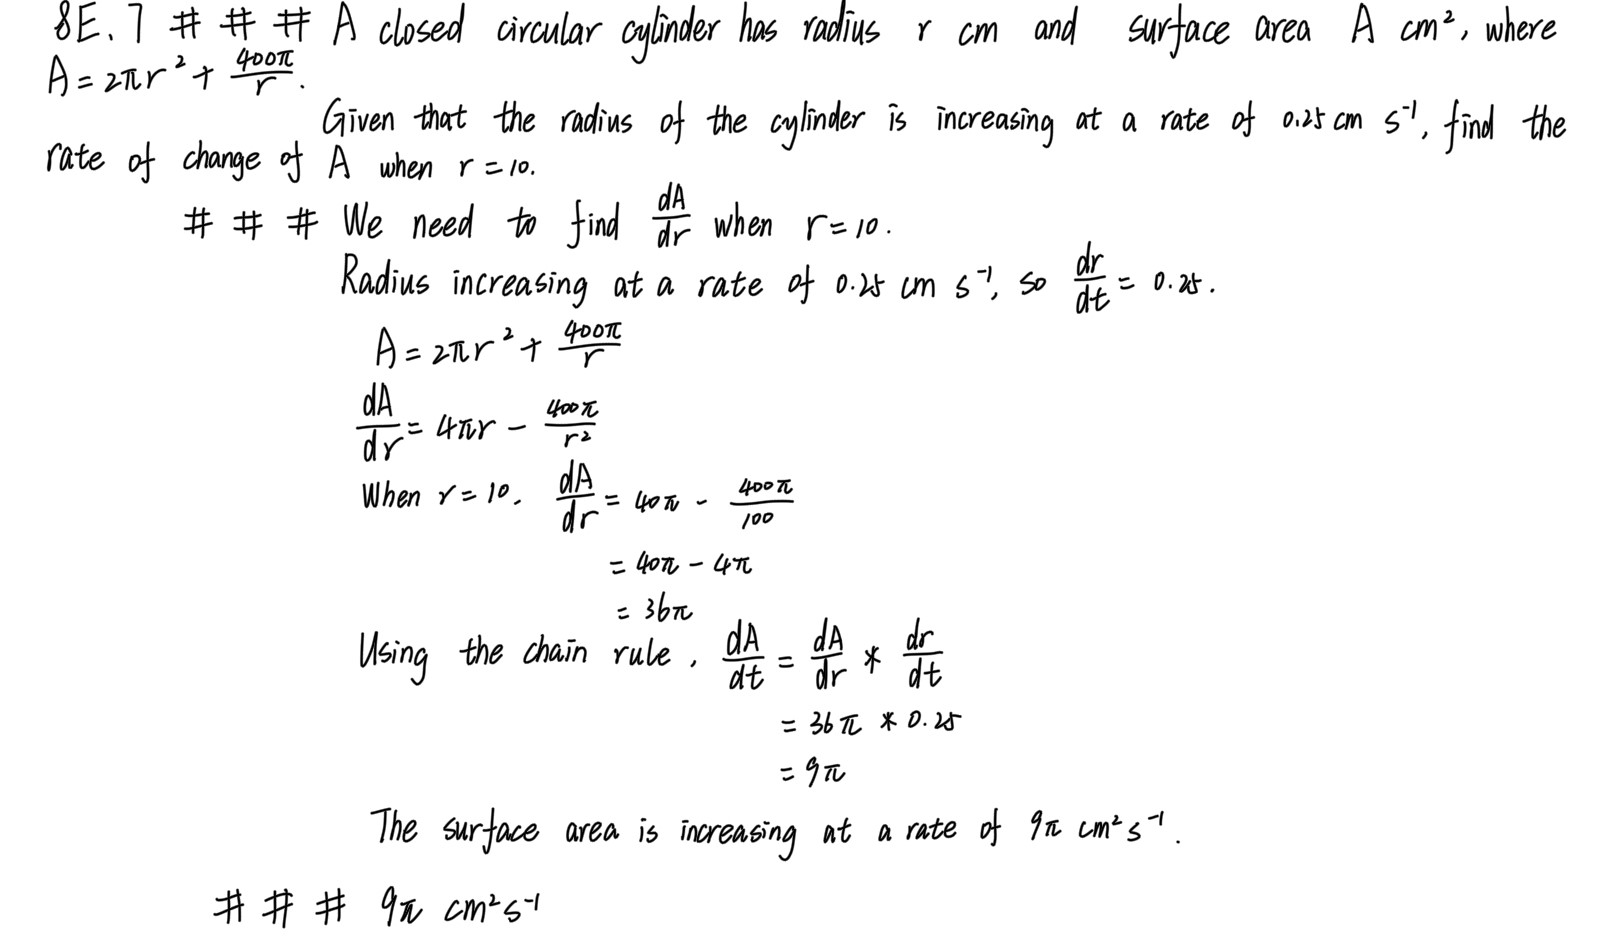 8E.7 # # # A closed circular cylinder has radius r cm and surface area A cm², where
A = 2πr² + 400π/r.
Given that the radius of the cylinder is increasing at a rate of 0.25 cm s⁻¹, find the
rate of change of A when r = 10.
# # # We need to find dA/dr when r = 10.
Radius increasing at a rate of 0.25 cm s⁻¹, so dr/dt = 0.25.
A = 2πr² + 400π/r
dA/dr = 4πr - 400π/r²
When r = 10, dA/dr = 40π - 400π/100
= 40π - 4π
= 36π
Using the chain rule, dA/dt = dA/dr * dr/dt
= 36π * 0.25
= 9π
The surface area is increasing at a rate of 9π cm² s⁻¹.
# # # 9π cm² s⁻¹